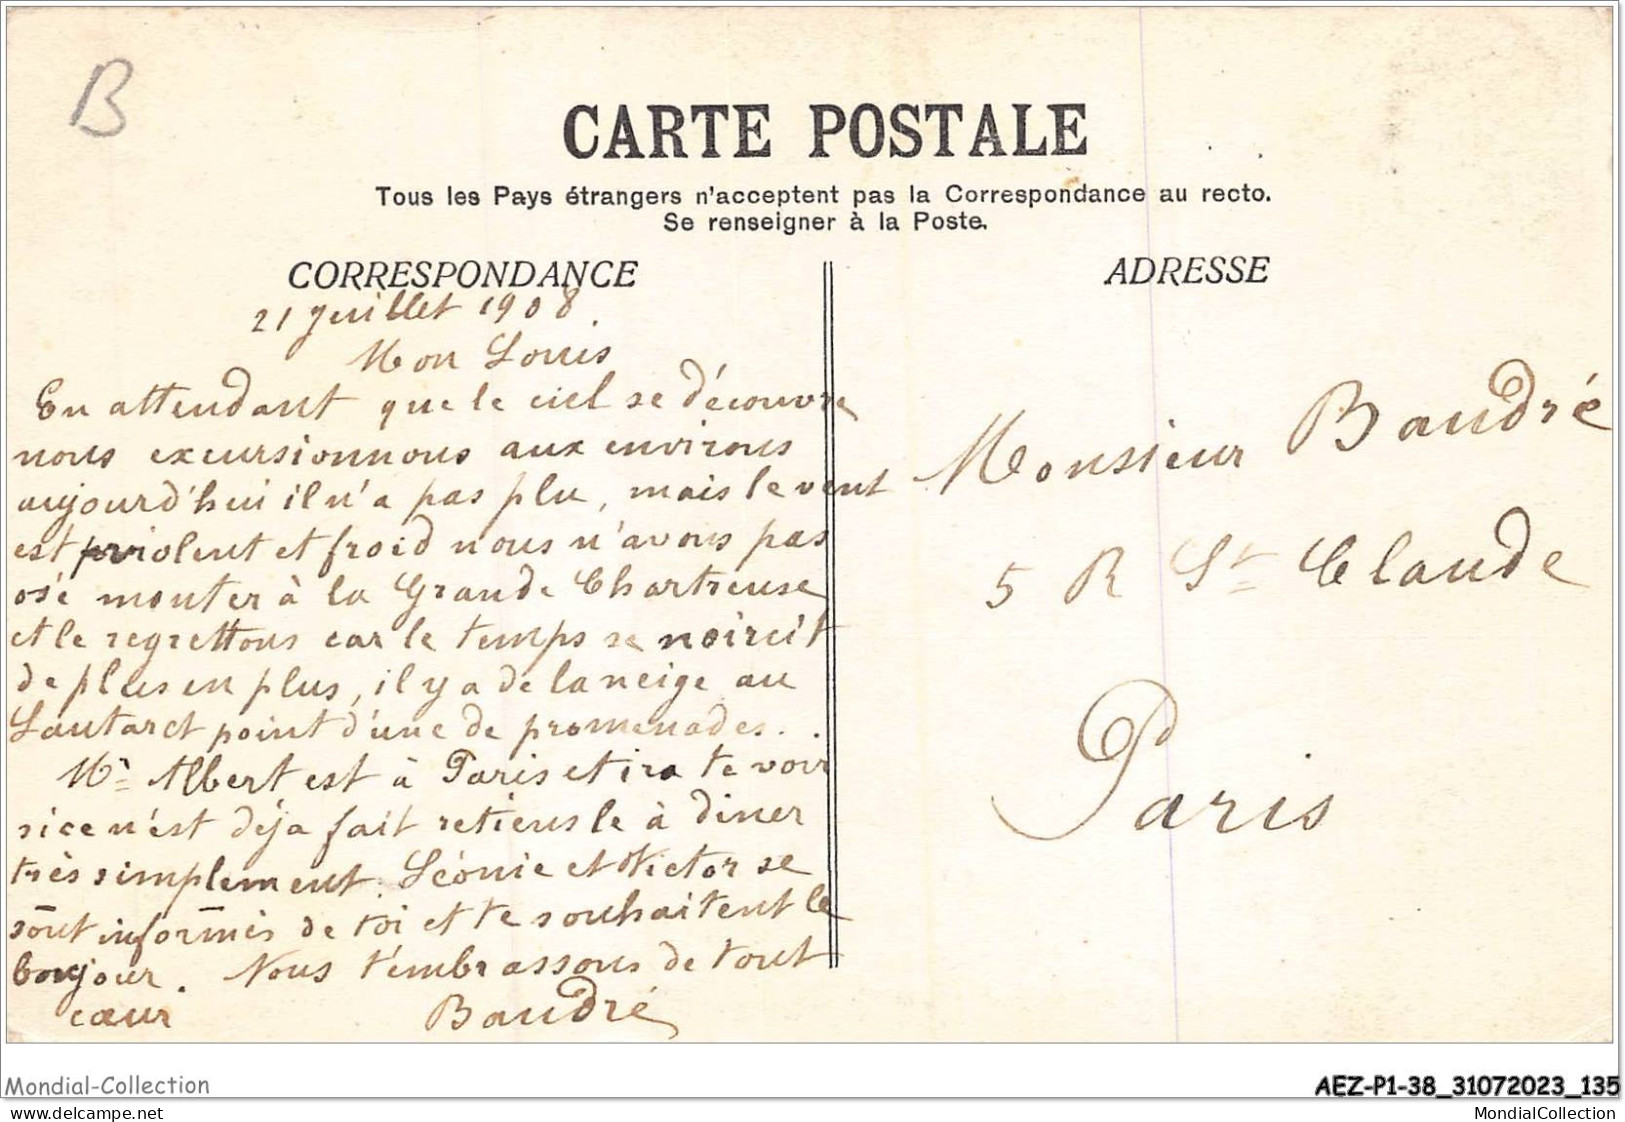 B
CARTE POSTALE
Tous les Pays étrangers n'acceptent pas la Correspondance au recto.
Se renseigner à la Poste.
CORRESPONDANCE
21 juillet 1908.
Mon Louis
En attendant que le ciel se découvre
nous excursionnons aux environs
aujourd'hui il n'a pas plu, mais le vent
est violent et froid nous n'avons pas
osé monter à la Grande Chartreuse
et le regrettons car le temps se noircit
de plus en plus, il y a de la neige au
Lautaret point d'une de promenades..
Mr Albert est à Paris et ira te voir
si ce n'est déja fait retiens le à diner
très simplement. Léonie et Victor se
sont informés de toi et te souhaitent le
bonjour. Nous t'embrassons de tout
cœur Baudré
ADRESSE
Monsieur Baudré
5 R St Claude
Paris
Mondial-Collection
AEZ-P1-38_31072023_135
delcampe.net
MondialCollection